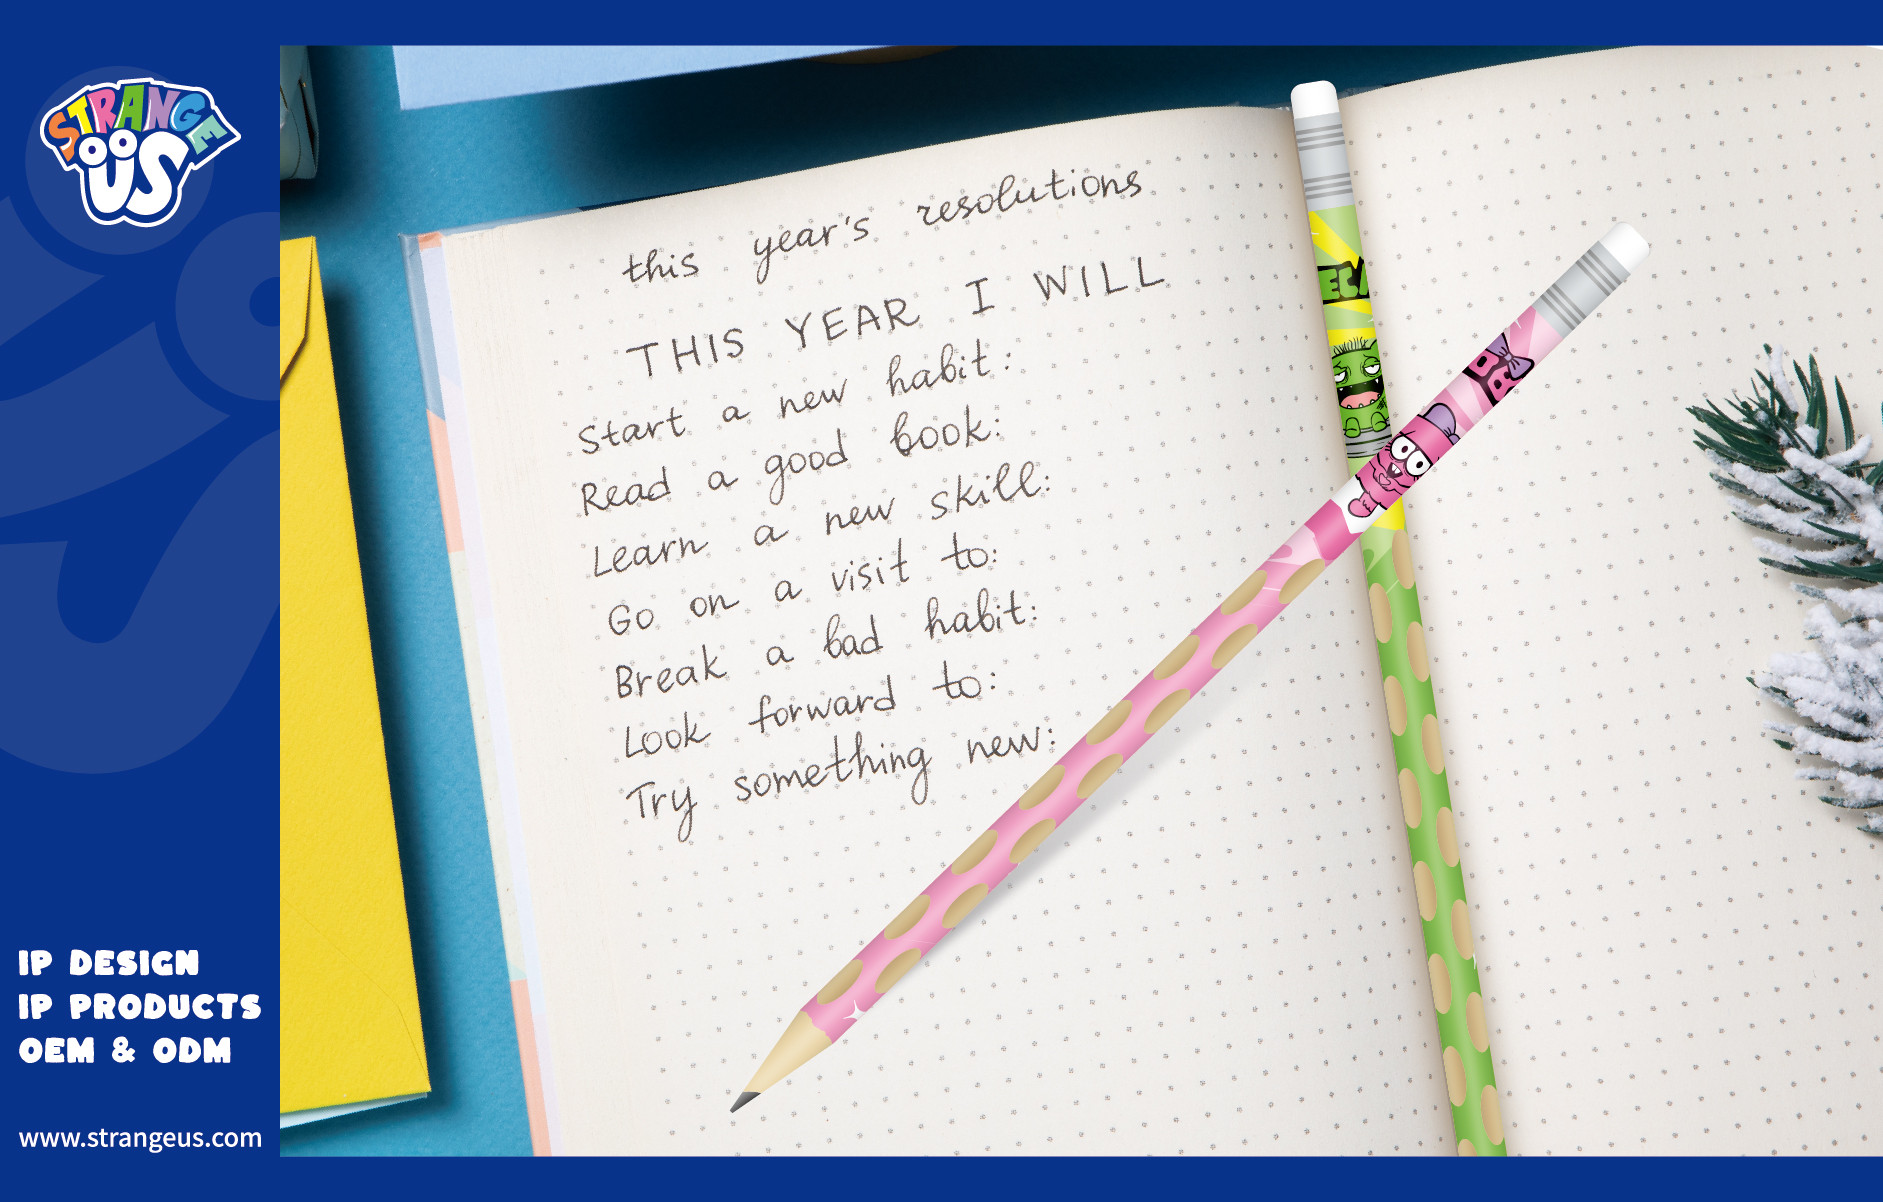 STRANGE
US
IP DESIGN
IP PRODUCTS
OEM & ODM
www.strangeus.com
this year's resolutions
THIS YEAR I WILL
Start a new habit:
Read a good book:
Learn a new skill:
Go on a visit to:
Break a bad habit:
Look forward to:
Try something new: